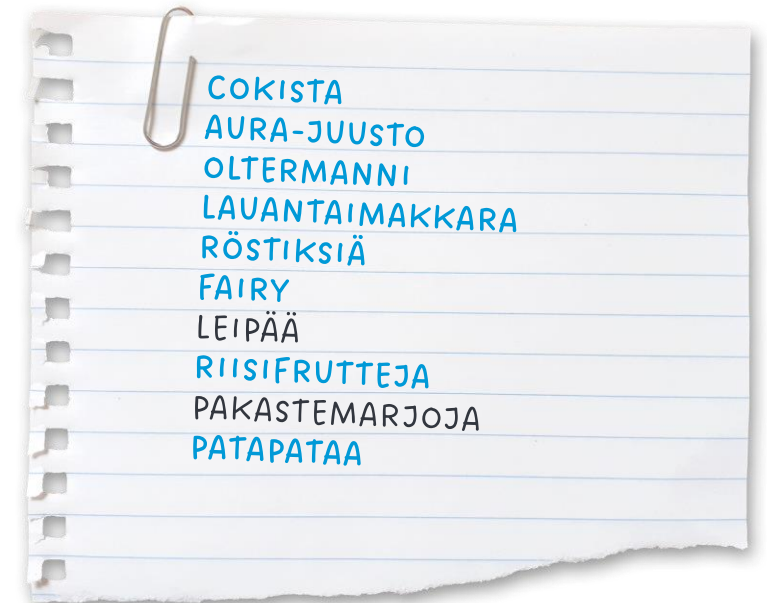 COKISTA
AURA-JUUSTO
OLTERMANNI
LAUANTAIMAKKARA
RÖSTIKSIÄ
FAIRY
LEIPÄÄ
RIISIFRUTTEJA
PAKASTEMARJOJA
PATAPATAA